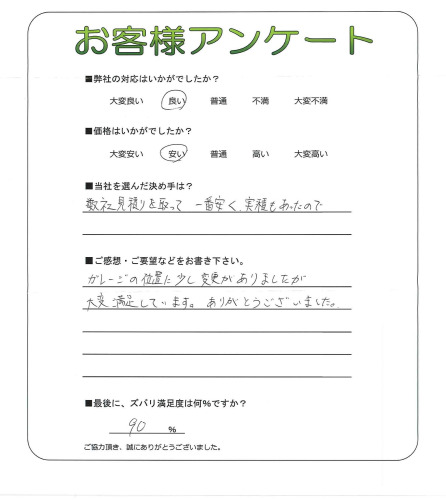 お客様アンケート
■弊社の対応はいかがでしたか？
大変良い　良い　普通　不満　大変不満
■価格はいかがでしたか？
大変安い　安い　普通　高い　大変高い
■当社を選んだ決め手は？
数社見積りを取って 一番安く、実積もあったので
■ご感想・ご要望などをお書き下さい。
ガレージの位置に少し変更がありましたが
大変満足しています。ありがとうございました。
■最後に、ズバリ満足度は何％ですか？
90 ％
ご協力頂き、誠にありがとうございました。